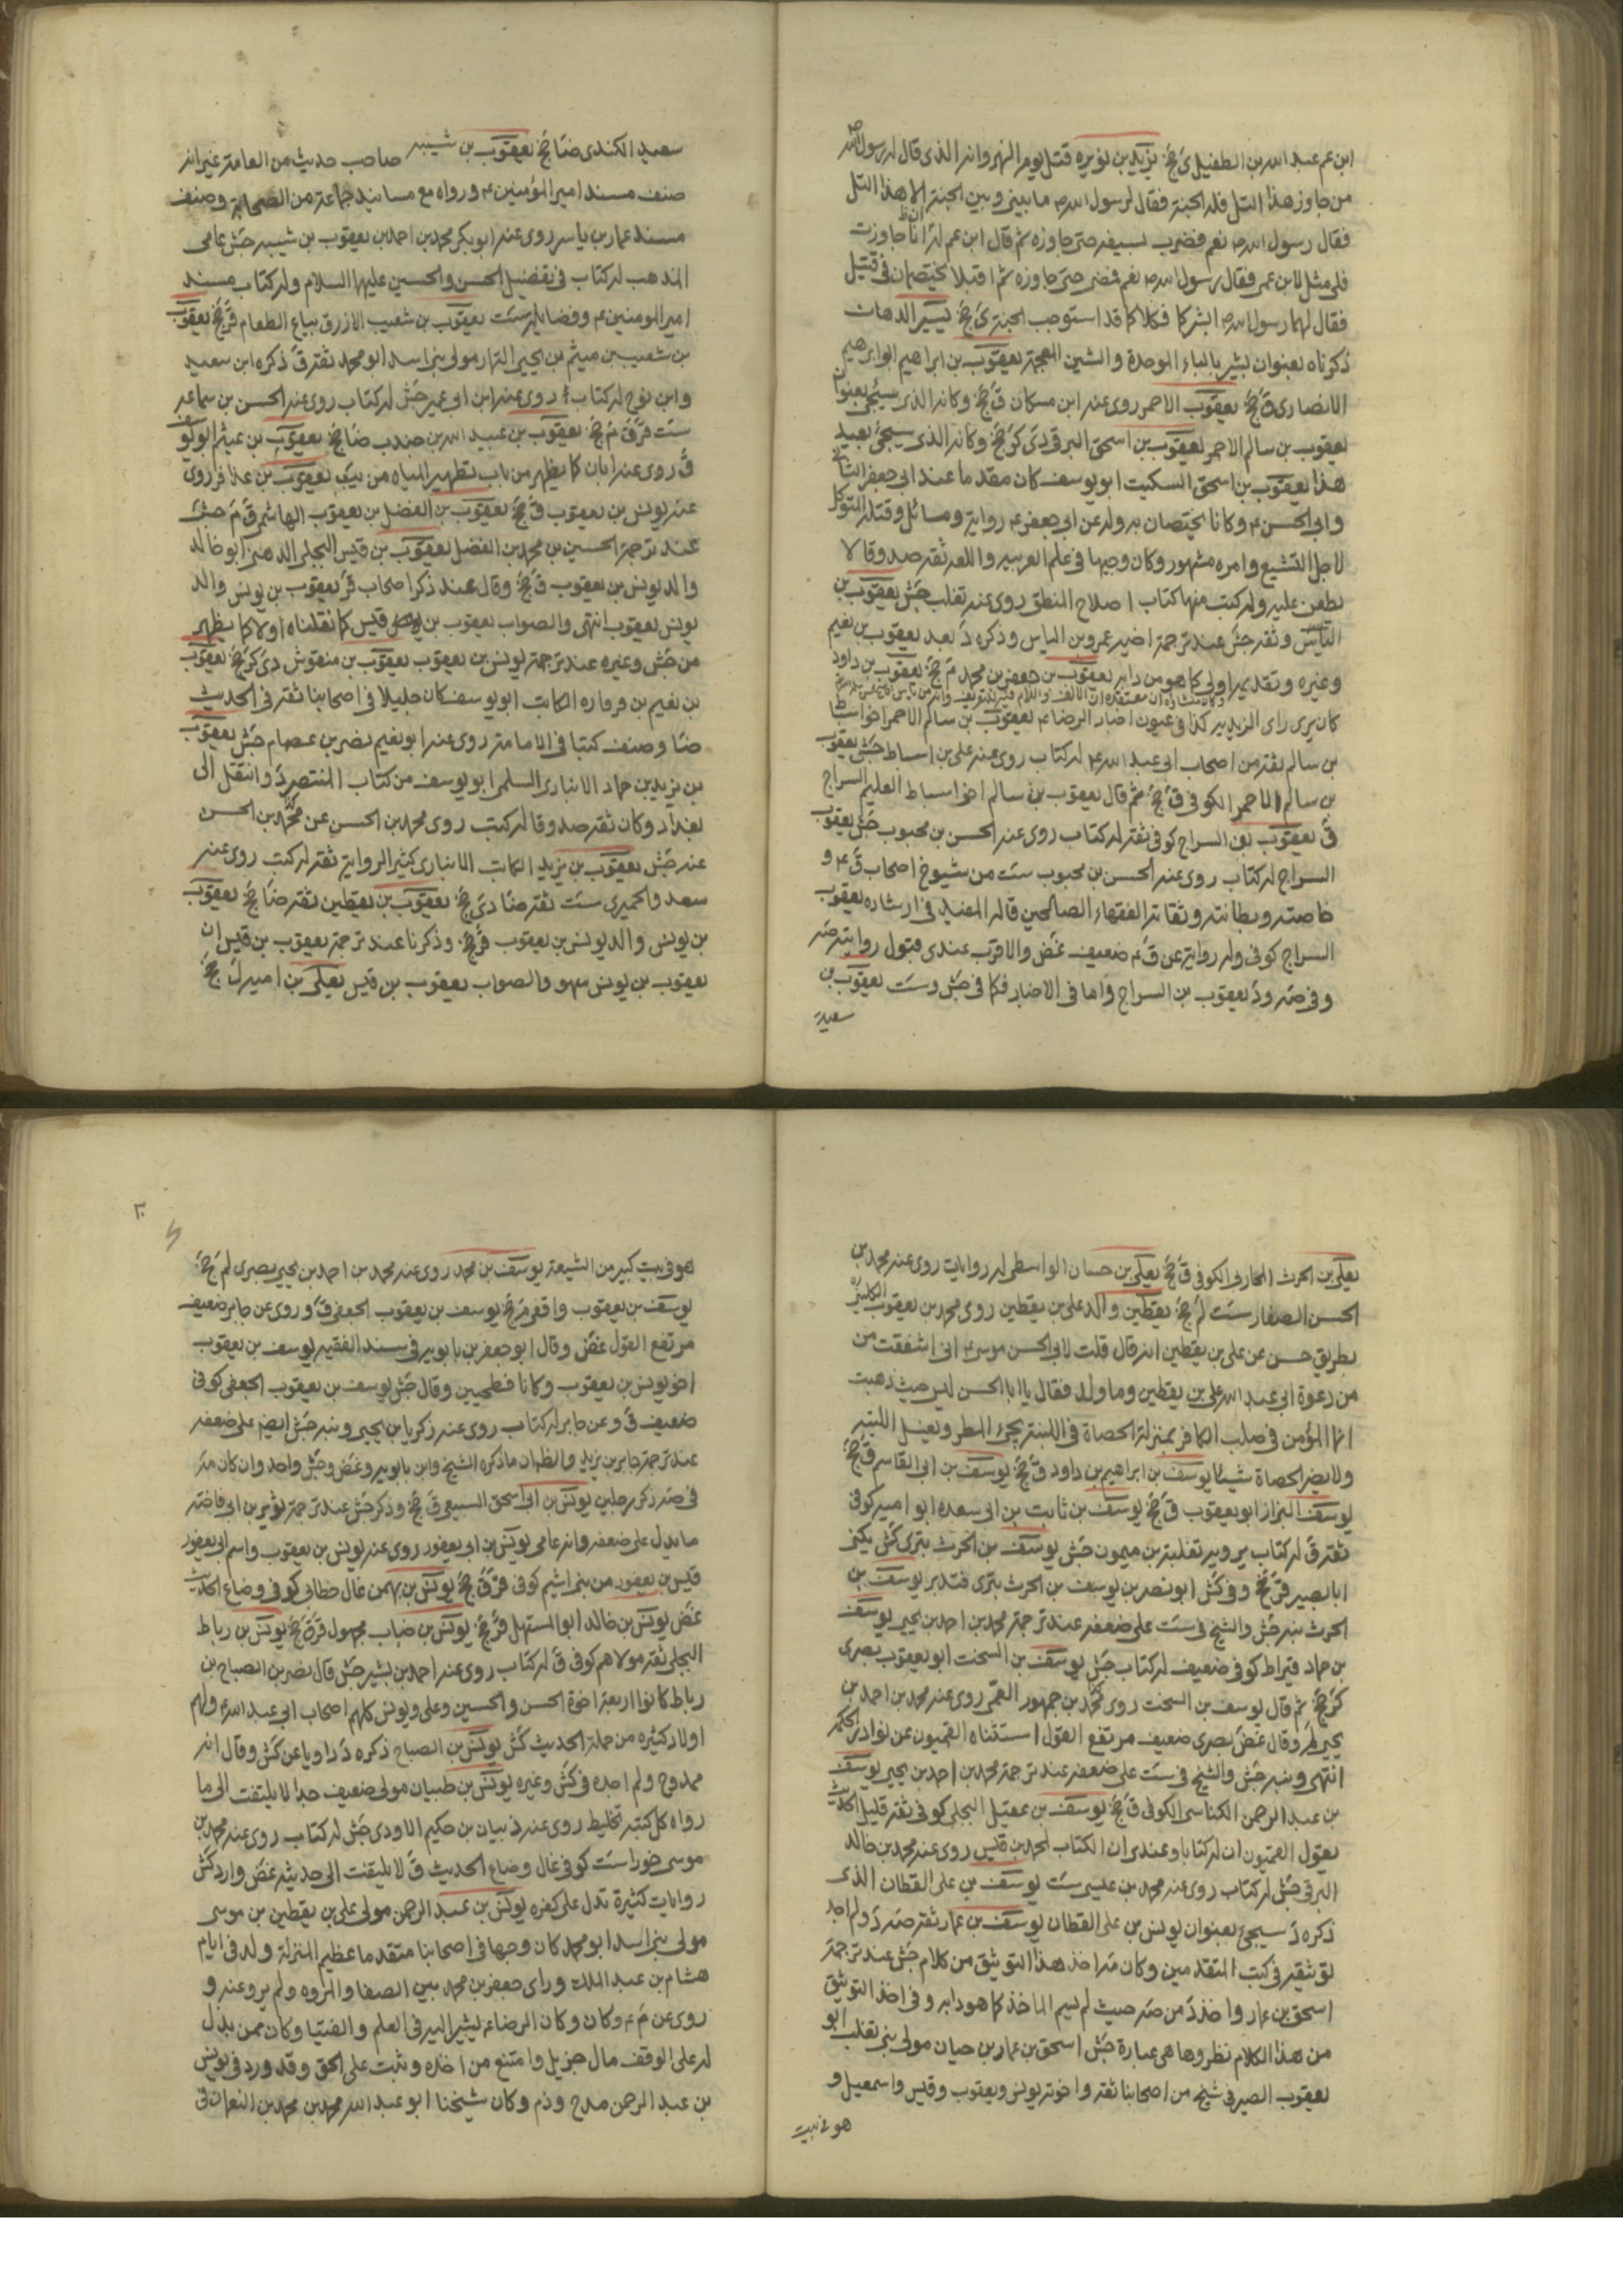 ابن عم عبد الله بن الطفيل ى جخ يزيد بن نويره قتل يوم النهروان الذى قال له رسول الله ص
من جاوز هذا التل فله الجنة فقال لرسول الله ص ما بينى وبين الجنة الا هذا التل
فقال رسول الله ص نعم فضرب بسيفه حتى جاوزه ثم قال ابن عم له ان انا جاوزت
فلى مثل لابن عمى فقال رسول الله ص نعم فمضى حتى جاوزه ثم اقبلا يختصمان فى قتيل
فقال لهما رسول الله ص ابشركا فكلاكما قد استوجب الجنة ى جخ يسير الدهان
ذكرناه بعنوان بشير بالباء الموحدة والشين المعجمة يعقوب بن ابراهيم ابو ابرهيم
الانصارى ق جخ يعقوب الاحمر روى عنه ابن مسكان ق جخ وكانه الذى سيجئ بعنوان
يعقوب بن سالم الاحمر يعقوب بن اسحق البرقى دى كر جخ وكانه الذى سيجئ بعيد
هذا يعقوب بن اسحق السكيت ابو يوسف كان مقدما عند ابى جعفر الثانى
وابى الحسن ع وكانا يختصان به وله عن ابى جعفر ع رواية ومسائل وقتله المتوكل
لاجل التشيع وامره مشهور وكان وجيها فى علم العربيه واللغه ثقه صدوقا لا
يطعن عليه وله كتب منها كتاب اصلاح المنطق روى عنه ثعلب جش يعقوب بن
الياس وثقه جش عند ترجمة اخيه عمرو بن الياس وذكره د بعد يعقوب بن نعيم
وغيره وتقديره اولى كما هو من دابه يعقوب بن جعفر بن محمد م جخ يعقوب بن داود
كان يرى راى الزيديه كذا فى عيون اخبار الرضا ع يعقوب بن سالم الاحمر اخو اسباط
بن سالم ثقه من اصحاب ابى عبد الله ع له كتاب روى عنه على بن اسباط جش يعقوب
بن سالم الاحمر الكوفى ق جخ ثم قال يعقوب بن سالم اخو اسباط العليم السراج
ق يعقوب بن السراج كوفى ثقه له كتاب روى عنه الحسن بن محبوب جش يعقوب
السراج له كتاب روى عنه الحسن بن محبوب ست من شيوخ اصحاب ق ع و
خاصته وبطانته وثقاته الفقهاء الصالحين قاله المفيد فى ارشاده يعقوب
السراج كوفى وله رواية عن ق ع ضعيف غض والاقرب عندى قبول روايته صه
وفى صه ود يعقوب بن السراج واما فى الاخبار فكما فى جش وست يعقوب بن
سعيد
سعيد الكندى ضا جخ يعقوب بن شيبه صاحب حديث من العامة غير انه
صنف مسند امير المؤمنين ع ورواه مع مسانيد جماعة من الصحابة وصنف
مسند عمار بن ياسر روى عنه ابو بكر محمد بن احمد بن يعقوب بن شيبه جش عامى
المذهب له كتاب فى تفضيل الحسن والحسين عليهما السلام وله كتاب مسند
امير المومنين ع وفضايله ست يعقوب بن شعيب الازرق بياع الطعام قر جخ يعقوب
بن شعيب بن ميثم بن يحيى التمار مولى بنى اسد ابو محمد ثقه ق ذكره ابن سعيد
وابن نوح له كتاب روى عنه ابن ابى عمير جش له كتاب روى عنه الحسن بن سماعه
ست قر ق م جخ يعقوب بن عبيد الله بن جندب ضا جخ يعقوب بن عيثم ابو يوسف
ق روى عنه ابان كما يظهر من باب تطهير المياه من يب يعقوب بن عذافر روى
عنه يونس بن يعقوب ق جخ يعقوب بن الفضل بن يعقوب الهاشمى ق م جش
عند ترجمة الحسين بن محمد بن الفضل يعقوب بن قيس البجلى الدهنى ابو خالد
والد يونس بن يعقوب ق جخ وقال عند ذكر اصحاب قر يعقوب بن يونس والد
يونس يعقوب انتهى والصواب يعقوب بن قيس كما نقلناه اولا كما يظهر
من جش وغيره عند ترجمة يونس بن يعقوب يعقوب بن منقوش دى كر جخ يعقوب
بن نعيم بن قرقاره الكاتب ابو يوسف كان جليلا فى اصحابنا ثقه فى الحديث
ضا وصنف كتبا فى الامامة روى عنه ابو نعيم نصر بن عصام جش يعقوب
بن يزيد بن حماد الانبارى السلمى ابو يوسف من كتاب المنتصر د وانتقل الى
بغداد وكان ثقه صدوقا له كتب روى محمد بن الحسن عن محمد بن الحسن
عنه جش يعقوب بن يزيد الكاتب الانبارى كثير الرواية ثقه له كتب روى عنه
سعد والحميرى ست ثقه ضا دى جخ يعقوب بن يقطين ثقه ضا جخ يعقوب
بن يونس والد يونس بن يعقوب قر جخ وذكرنا عند ترجمة يعقوب بن قيس ان
يعقوب بن يونس سهو والصواب يعقوب بن قيس يعلى بن اميه ل جخ
يعلى بن الحرث المحاربى الكوفى ق جخ يعلى بن حسان الواسطى له روايات روى عنه محمد بن
الحسن الصفار ست لم جخ يقطين والد على بن يقطين روى محمد بن يعقوب الكلينى
بطريق حسن عن على بن يقطين انه قال قلت لابى الحسن موسى ع انى اشفقت من
من دعوة ابى عبد الله على بن يقطين وما ولد فقال يا ابا الحسن ليس حيث ذهبت
انما المؤمن فى صلب الكافر بمنزلة الحصاة فى اللبنة يجئ المطر ويغسل اللبنه
ولا يضر الحصاة شيئا يوسف بن ابراهيم بن داود ق جخ يوسف بن ابى القاسم ق جخ
يوسف البزاز ابو يعقوب ق جخ يوسف بن ثابت بن ابى سعده ابو اميه كوفى
ثقه ق له كتاب يرويه ثعلبة بن ميمون جش يوسف بن الحرث بترى كش يكنى
ابا بصير قر جخ وفى كش ابو نصر بن يوسف بن الحرث بترى فتدبر يوسف بن
الحرث نبه جش والشيخ فى ست على ضعفه عند ترجمة محمد بن احمد بن يحيى يوسف
بن حماد قيراط كوفى ضعيف له كتاب جش يوسف بن السخت ابو يعقوب بصرى
كر جخ ثم قال يوسف بن السخت روى محمد بن جمهور العمى روى عنه محمد بن احمد بن
يحيى لم وقال غض بصرى ضعيف مرتفع القول استثناه القميون عن نوادر الحكمة
انتهى ونبه جش والشيخ فى ست على ضعفه عند ترجمة محمد بن احمد بن يحيى يوسف
بن عبد الرحمن الكناسى الكوفى ق جخ يوسف بن عقيل البجلى كوفى ثقه قليل الحديث
يقول القميون ان له كتابا وعندى ان الكتاب لمحمد بن قيس روى عنه محمد بن خالد
البرقى جش له كتاب روى عنه محمد بن عيسى ست يوسف بن على القطان الذى
ذكره د سيجئ بعنوان يونس بن على القطان يوسف بن عمار ثقه صه د ولم اجد
توثيقه فى كتب المتقدمين وكان صه اخذ هذا التوثيق من كلام جش عند ترجمة
اسحق بن عمار واخذ د من صه حيث لم يسم الماخذ كما هو دابه وفى اخذ التوثيق
من هذا الكلام نظر وها هى عبارة جش اسحق بن عمار بن حيان مولى بنى تغلب ابو
يعقوب الصيرفى شيخ من اصحابنا ثقه واخوته يونس ويعقوب وقيس واسمعيل و
هو فى بيت
٣٠
هو فى بيت كبير من الشيعة يوسف بن محمد روى عنه محمد بن احمد بن يحيى بصرى لم جخ
يوسف بن يعقوب واقفى م جخ يوسف بن يعقوب الجعفى ق و روى عن جابر ضعيف
مرتفع القول غض وقال ابو جعفر بن بابويه فى سند الفقيه يوسف بن يعقوب
اخو يونس بن يعقوب وكانا فطحيين وقال جش يوسف بن يعقوب الجعفى كوفى
ضعيف ق وعن جابر له كتاب روى عنه زكريا بن يحيى ونبه جش ايضا على ضعفه
عند ترجمة جابر بن يزيد والظاهر ان ما ذكره الشيخ وابن بابويه وغض وجش واحد وان كان صه
فى صه ذكر رجلين يونس بن ابى اسحق السبيعى ق جخ وذكر جش عند ترجمة ثوير بن ابى فاخته
ما يدل على ضعفه وانه عامى يونس بن ابى يعفور روى عنه يونس بن يعقوب واسم ابى يعفور
قيس بن يعفور من بنى اشيم كوفى قر ق جخ يونس بن بهمن غال خطابى كوفى وضاع الحديث
غض يونس بن خالد ابو المستهل قر جخ يونس بن خباب مجهول قر ق جخ يونس بن رباط
البجلى ثقه مولاهم كوفى ق له كتاب روى عنه احمد بن بشير جش قال نصر بن الصباح بن
رباط كانوا اربعة اخوة الحسن والحسين وعلى ويونس كلهم اصحاب ابى عبد الله ع ولهم
اولاد كثيره من حملة الحديث كش يونس بن الصباح ذكره د راويا عن كش وقال انه
ممدوح ولم اجده فى كش وغيره يونس بن ظبيان مولى ضعيف جدا لا يلتفت الى ما
رواه كل كتبه تخليط روى عنه ذبيان بن حكيم الاودى جش له كتاب روى عنه محمد بن
موسى خورا ست كوفى غال وضاع الحديث ق لا يلتفت الى حديثه غض واورد كش
روايات كثيرة تدل على كفره يونس بن عبد الرحمن مولى على بن يقطين بن موسى
مولى بنى اسد ابو محمد كان وجها فى اصحابنا متقدما عظيم المنزلة ولد فى ايام
هشام بن عبد الملك وراى جعفر بن محمد بين الصفا والمروه ولم يرو عنه و
روى عن م ع وكان وكان الرضا ع يشير اليه فى العلم والفتيا وكان ممن بذل
له على الوقف مال جزيل وامتنع من اخذه وثبت على الحق وقد ورد فى يونس
بن عبد الرحمن مدح وذم وكان شيخنا ابو عبد الله محمد بن محمد بن النعمان فى